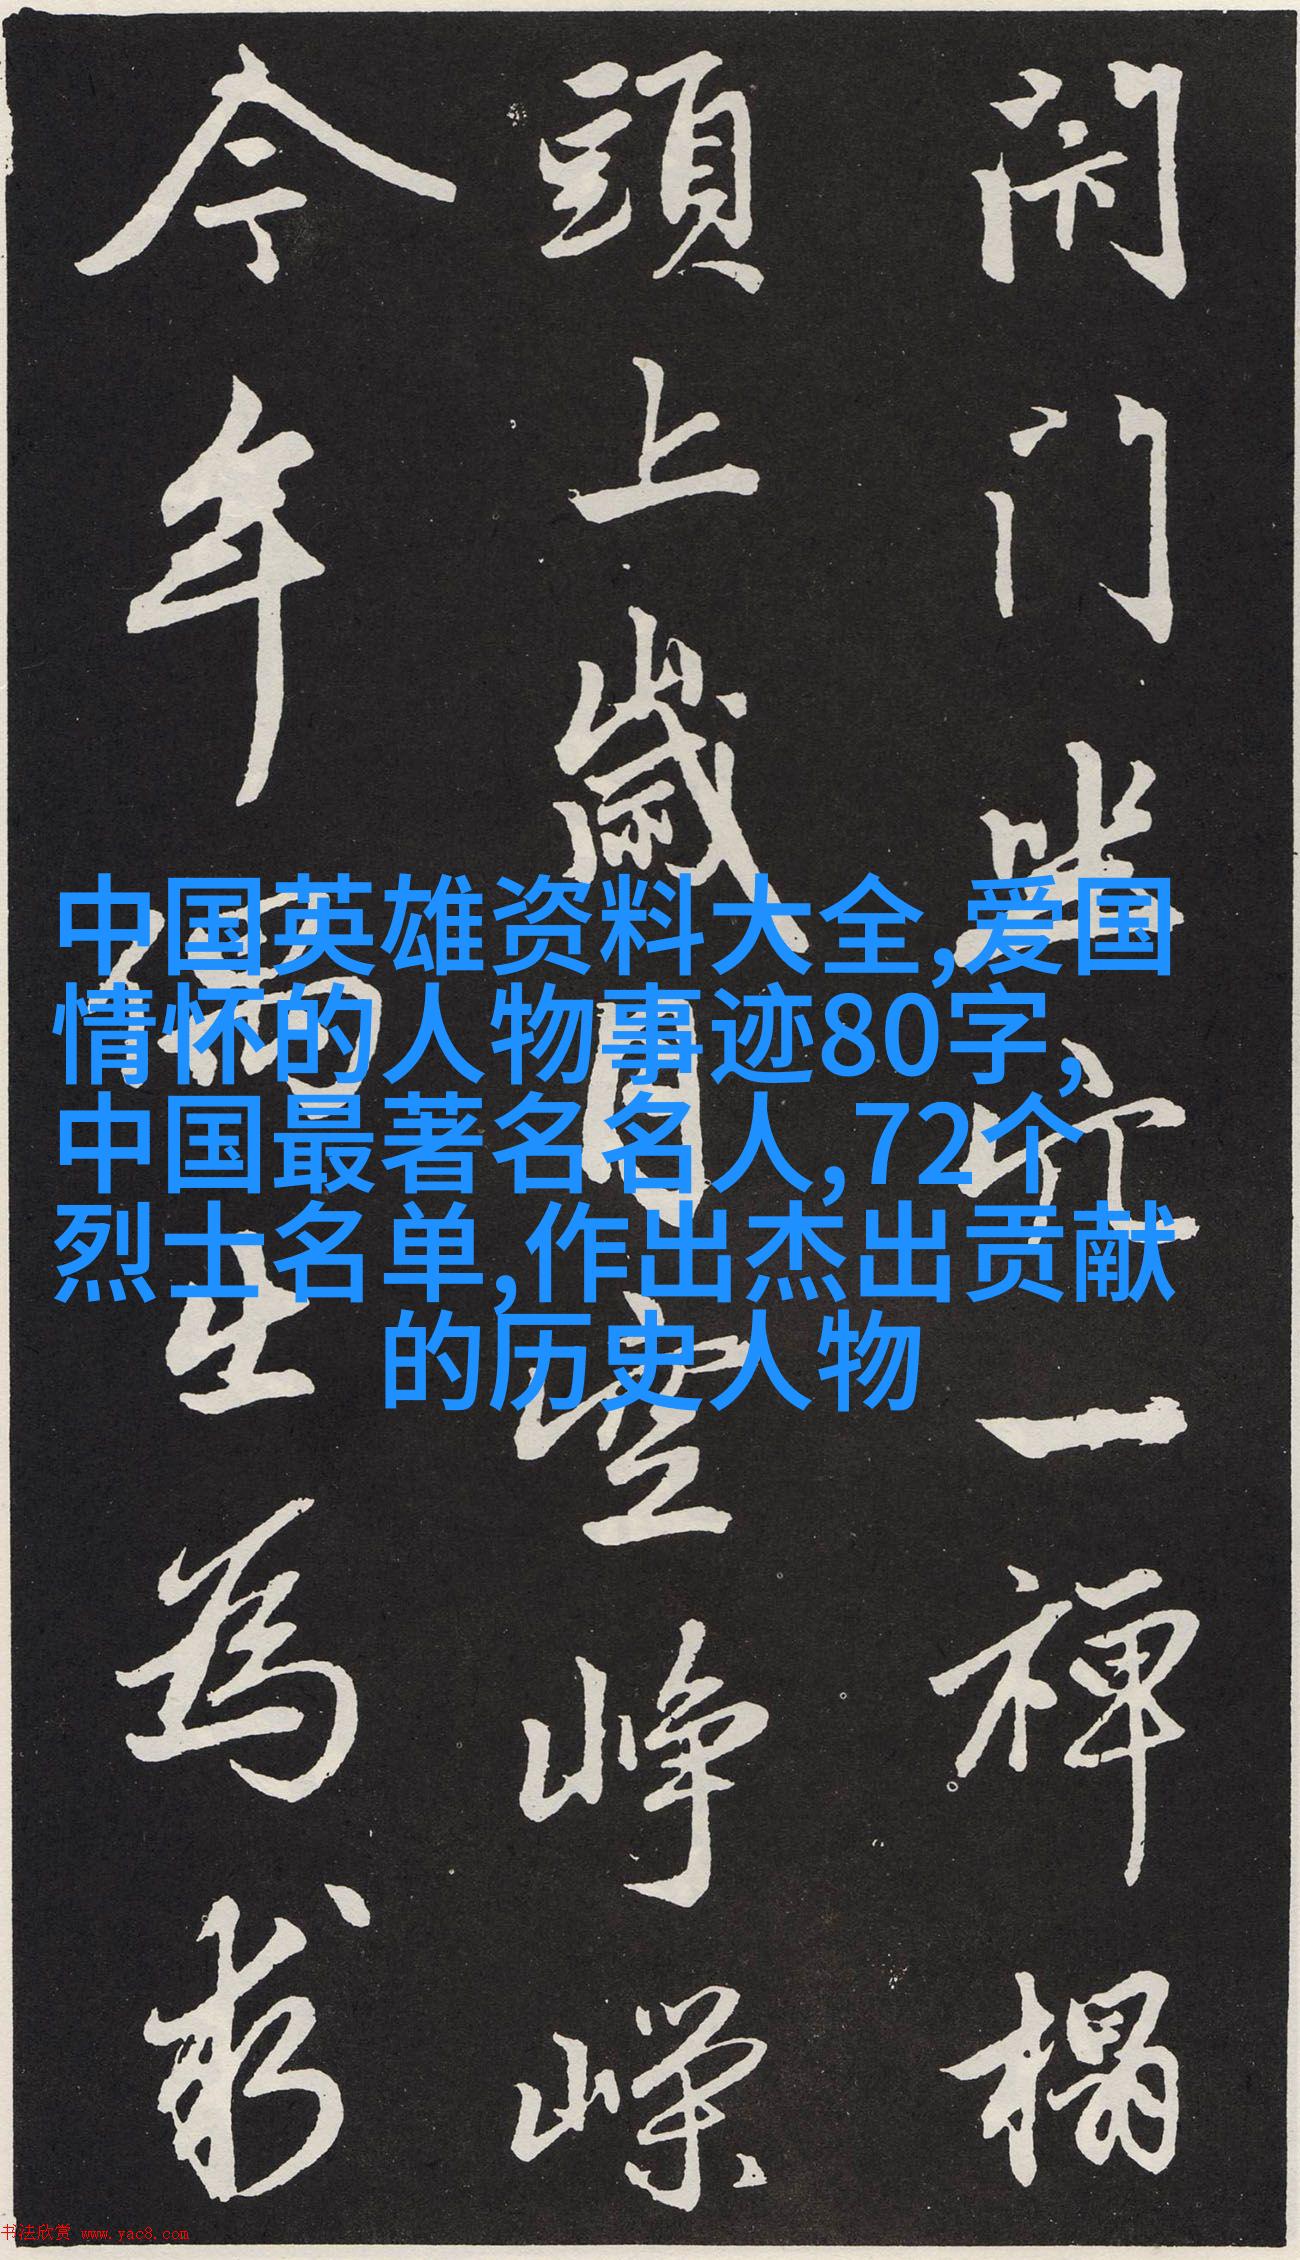 閇門坐穴一禪榻
頭上歲月空崢嶸
今年偶出為求
中国英雄资料大全,爱国
情怀的人物事迹80字,
中国最著名名人,72个
烈士名单,作出杰出贡献
的历史人物
书法欣赏 www.yac8.com